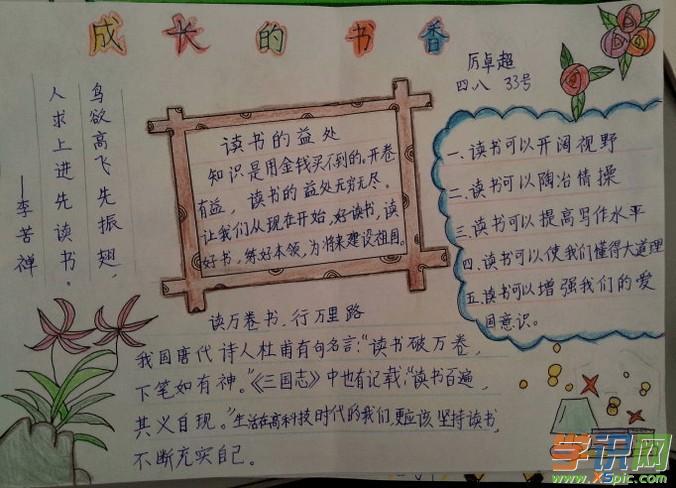 成长的书香
厉卓超
四.八 33号
鸟欲高飞先振翅，
人求上进先读书。
——李苦禅
读书的益处
知识是用金钱买不到的。开卷
有益，读书的益处无穷无尽。
让我们从现在开始，好读书，读
好书，练好本领，为将来建设祖国。
一.读书可以开阔视野
二.读书可以陶冶情操
三.读书可以提高写作水平
四.读书可以使我们懂得大道理
五.读书可以增强我们的爱
国意识。
读万卷书，行万里路
我国唐代诗人杜甫有句名言："读书破万卷，
下笔如有神。"《三国志》中也有记载："读书百遍，
其义自现。"生活在高科技时代的我们，更应该坚持读书，
不断充实自己。
学识网
www.XSpic.com